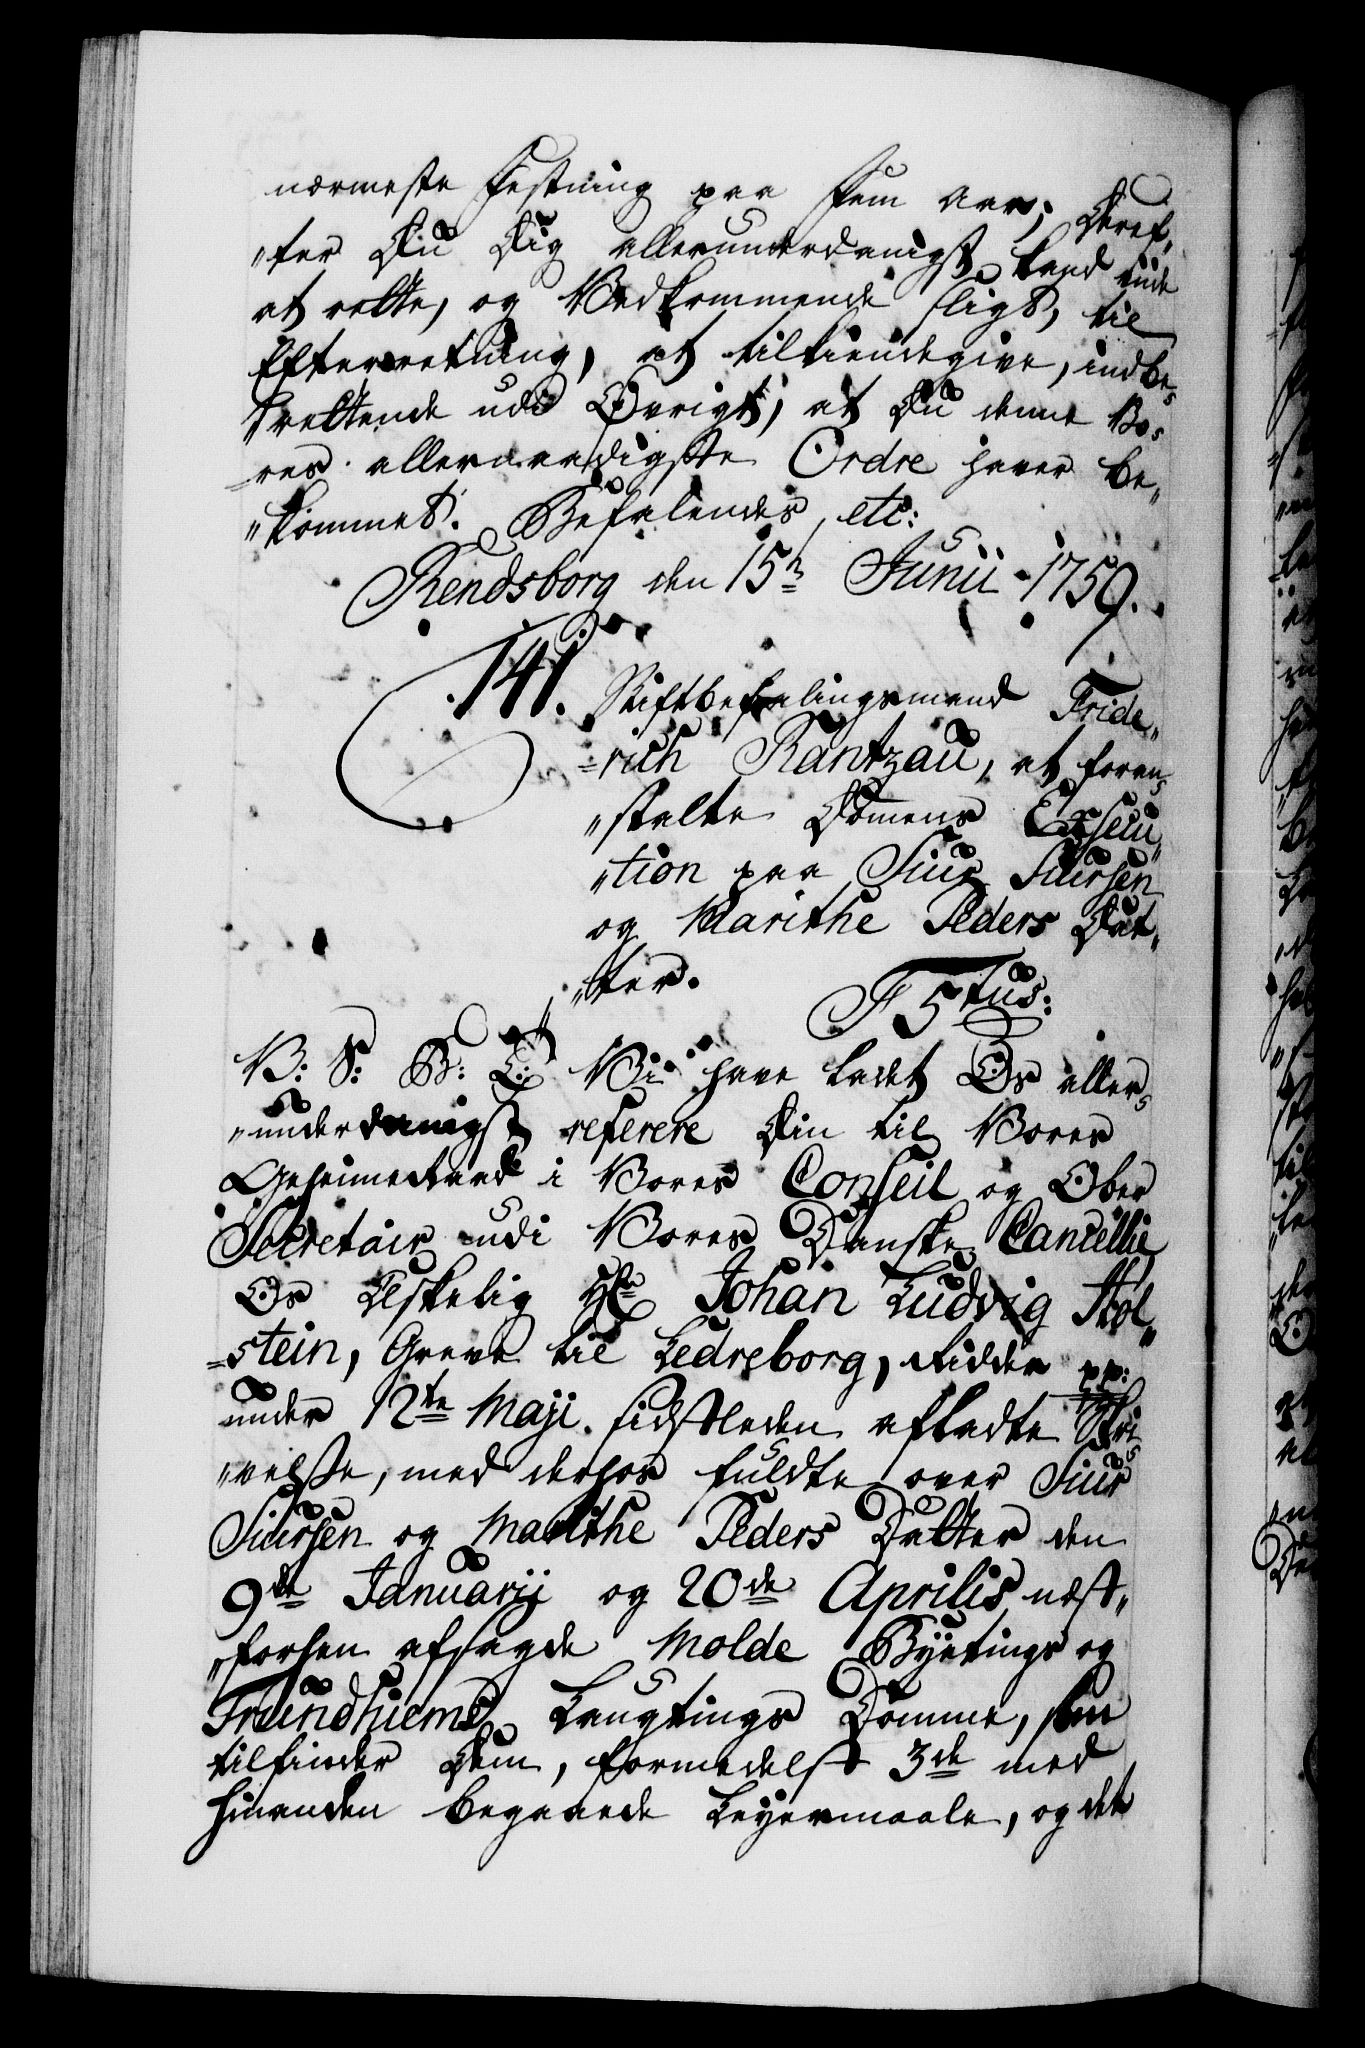 nærmeste Festning paa Fem Aar; Deref„
„ter Du Dig allerunderdanigst haver
at rette, og Vedkommende sligt, til
Efterretning, at tilkiendegive, indbe„
rettende udi Øvrigt, at Du denne Vo„
„res allernaadigste Ordre haver be„
„kommet. Befalendes etc:
Rendsborg den 15n Junii 1759.
141.
Stiftbefalingsmand Fride„
„rich Rantzau, at foran„
„stalte Dommens Execu„
„tion paa Siur Siursen
og Marithe Peders Dat„
„ter.
F 5tus:
V: S: B: T: Vi have ladet Os aller„
„underdanigst referere Din til Vores
Geheimeraad i Vores Conseil og Ober
Secretair udi Vores Danske Cancellie
Os Elskelig Hr Johan Ludvig Hol„
„stein, Greve til Ledreborg, Ridder pp:
under 12te Maji sidstleden afladte Skri„
„velse, med derhos fuldte over Siur
Siursen og Marithe Peders Datter den
9de Januarii og 20de Aprilis næst„
„forhen afsagde Molde Byetings og
Trundhiems Laugtings Domme, som
tilfinder Dem, formedelst 3de med
hinanden begaaede Leyermaale, og det